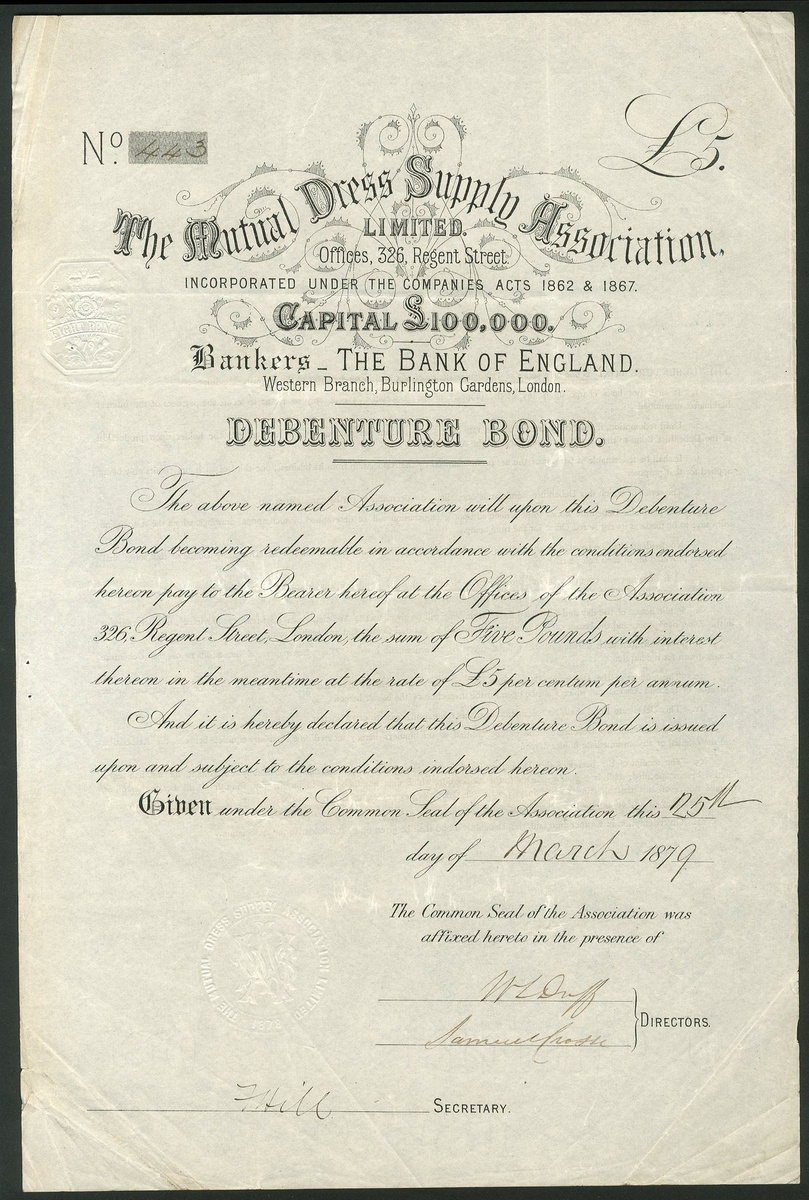 No. 443
£5.
The Mutual Dress Supply Association,
LIMITED.
Offices, 326, Regent Street.
INCORPORATED UNDER THE COMPANIES ACTS 1862 & 1867.
CAPITAL £100,000.
Bankers _ THE BANK OF ENGLAND.
Western Branch, Burlington Gardens, London.
DEBENTURE BOND.
The above named Association will upon this Debenture
Bond becoming redeemable in accordance with the conditions endorsed
hereon pay to the Bearer hereof at the Offices of the Association
326, Regent Street, London, the sum of Five Pounds with interest
thereon in the meantime at the rate of £5 per centum per annum.
And it is hereby declared that this Debenture Bond is issued
upon and subject to the conditions indorsed hereon.
Given under the Common Seal of the Association this 25th
day of March 1879
The Common Seal of the Association was
affixed hereto in the presence of
THE MUTUAL DRESS SUPPLY ASSOCIATION LIMITED
Samuel Crosse
DIRECTORS.
Hill
SECRETARY.